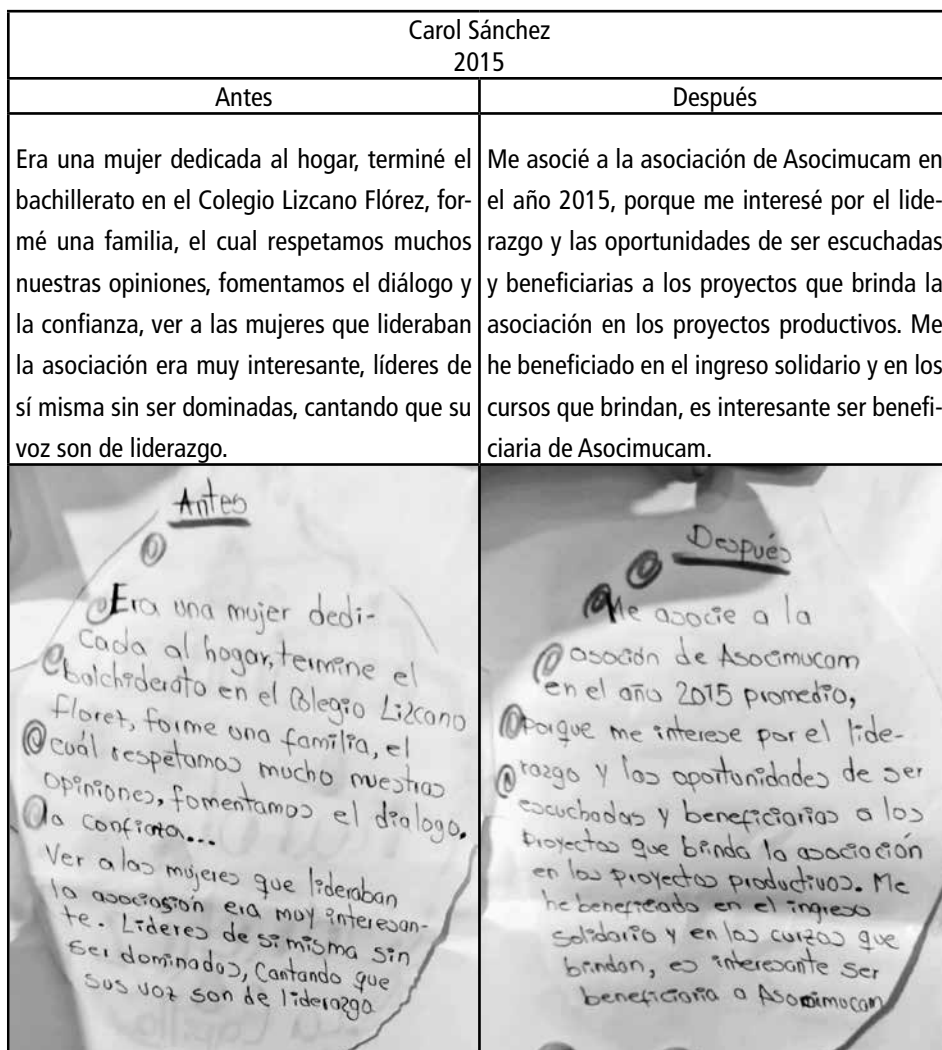 Carol Sánchez
2015
Antes
Era una mujer dedicada al hogar, terminé el
bachillerato en el Colegio Lizcano Flórez, for-
mé una familia, el cual respetamos muchos
nuestras opiniones, fomentamos el diálogo y
la confianza, ver a las mujeres que lideraban
la asociación era muy interesante, líderes de
sí misma sin ser dominadas, cantando que su
voz son de liderazgo.
Después
Me asocié a la asociación de Asocimucam en
el año 2015, porque me interesé por el lide-
razgo y las oportunidades de ser escuchadas
y beneficiarias a los proyectos que brinda la
asociación en los proyectos productivos. Me
he beneficiado en el ingreso solidario y en los
cursos que brindan, es interesante ser benefi-
ciaria de Asocimucam.
Antes
Era una mujer dedi-
cada al hogar, termine el
balchiderato en el Colegio Lizcano
Floret, forme una familia, el
cuál respetamos mucho nuestras
opiniones, fomentamos el dialogo,
la confianza...
Ver a las mujeres que lideraban
la asociasión era muy interesan-
te. Lideres de si misma sin
ser dominadas, Cantando que
sus voz son de liderazgo
Después
Me asocie a la
asoción de Asocimucam
en el año 2015 promedio,
Porque me interese por el lide-
razgo y las oportunidades de ser
escuchadas y beneficiarias a los
Proyectos que brinda la asociación
en los proyectos productivos. Me
he beneficado en el ingreso
solidario y en los curzos que
brindan, es interesante ser
beneficiaria a Asocimucam